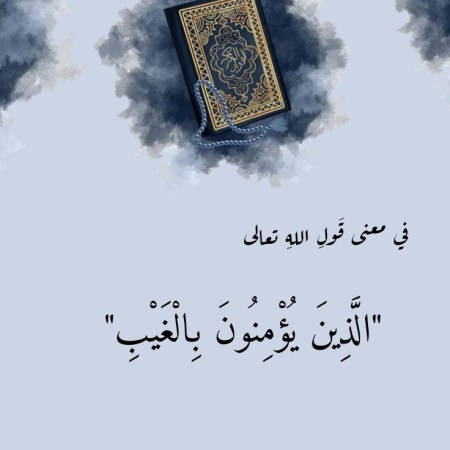 في معنى قَولِ اللهِ تعالى
"الَّذِينَ يُؤْمِنُونَ بِالْغَيْبِ"